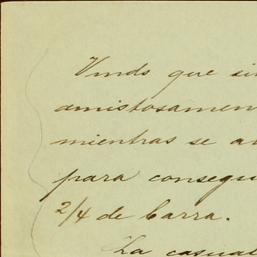 Vmds que si
amistosamen
mientras se a
para consegu
2/4 de barra.
La casual